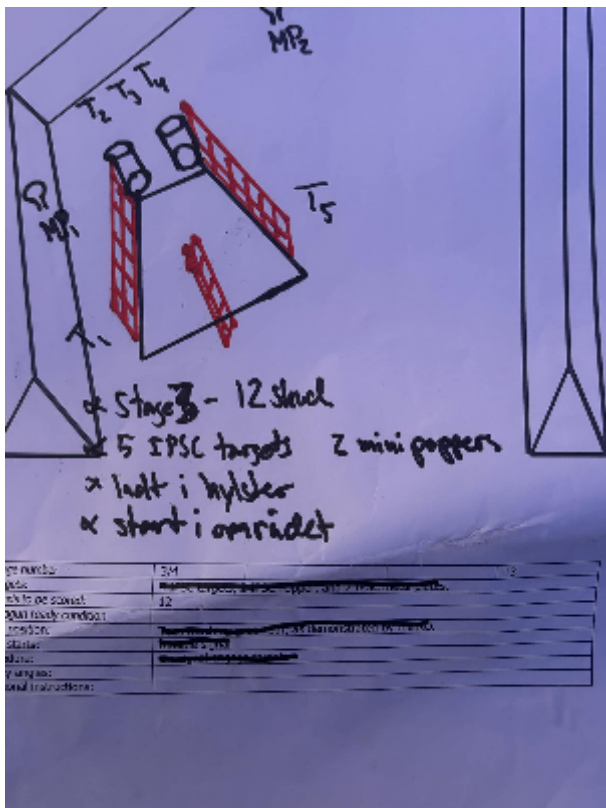 MP2
T2 T3 T4
T5
MP1
T1
Stage 3 - 12 skud
5 IPSC targets 2 mini poppers
ladt i hylster
start i området
number 3/4
to be scored: 12
ready condition
position:
starts:
angles:
instructions: